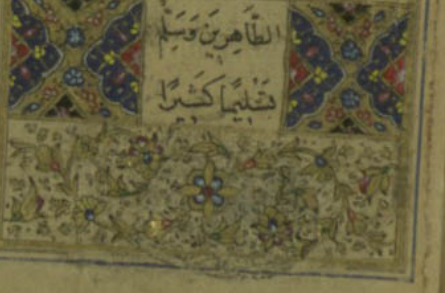 الطَّاهِرِينَ وَسَلِّمْ
تَسْلِيمًا كَثِيرًا